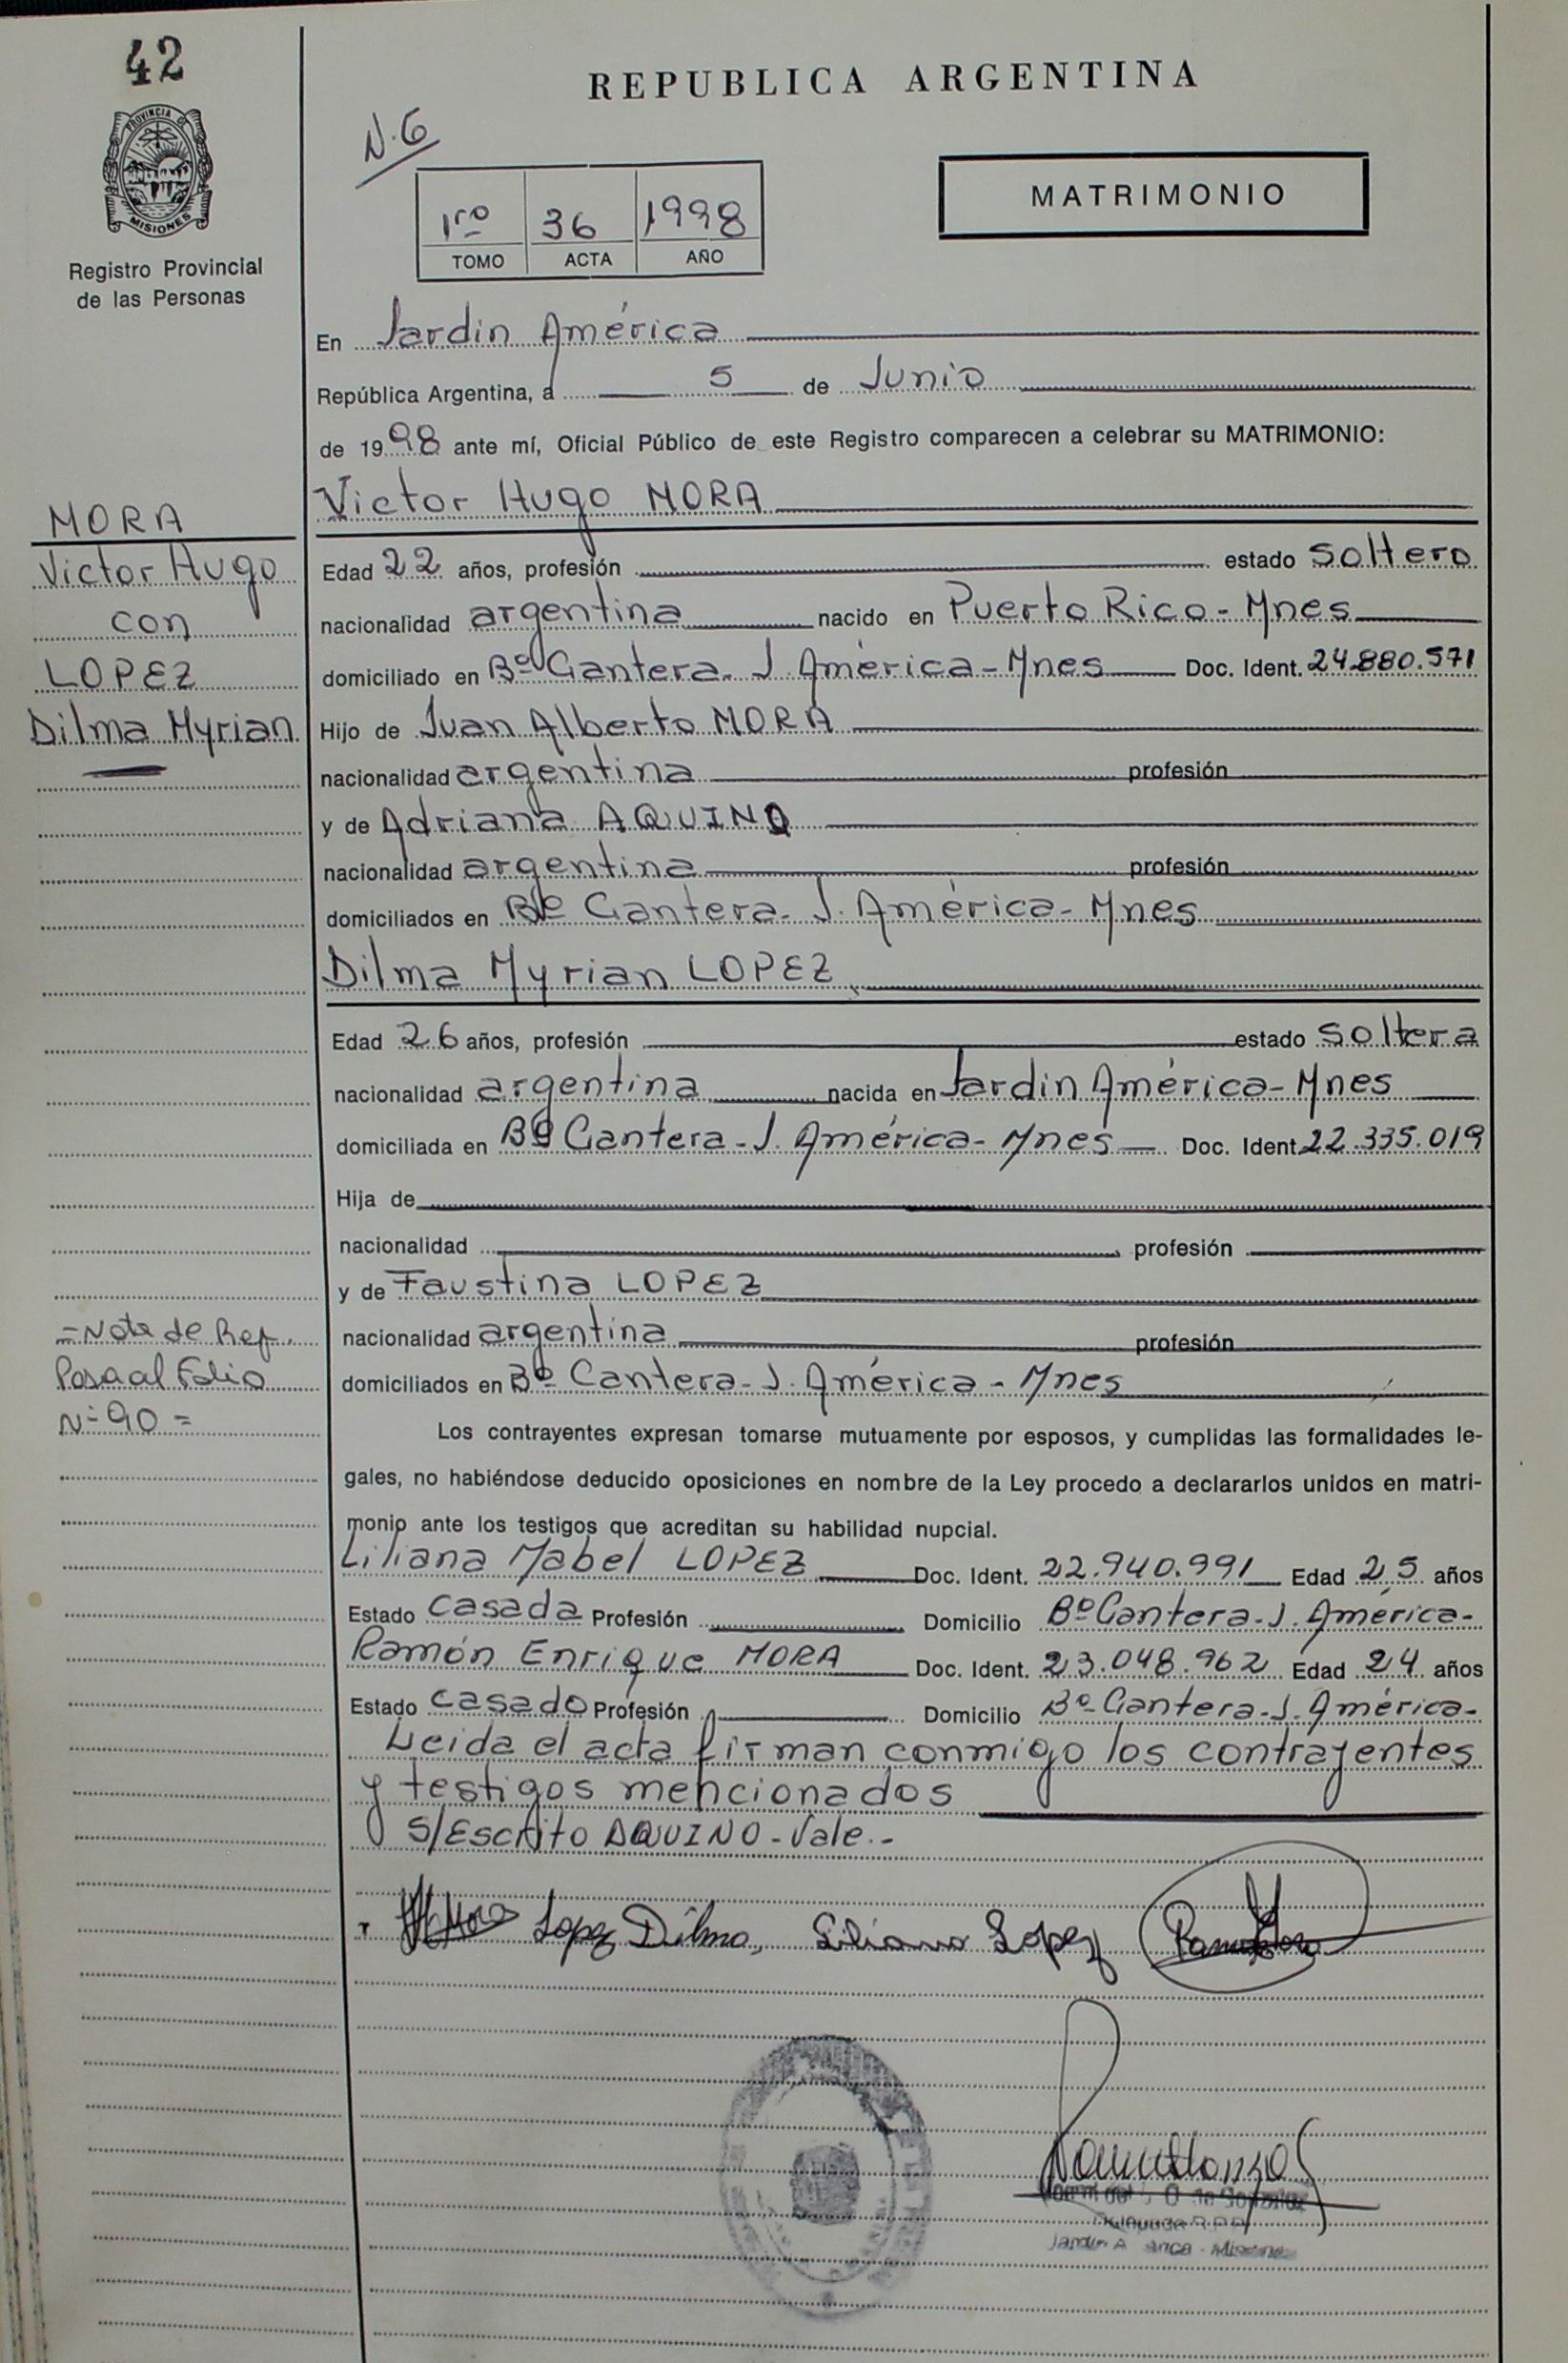 42
REPUBLICA ARGENTINA
N.G
PROVINCIA DE MISIONES
Registro Provincial
de las Personas
1ro 36 1998
TOMO ACTA AÑO
MATRIMONIO
En Jardin América
República Argentina, a 5 de Junio
de 1998 ante mí, Oficial Público de este Registro comparecen a celebrar su MATRIMONIO:
Victor Hugo MORA
MORA
Victor Hugo
con
LOPEZ
Dilma Myrian
Edad 22 años, profesión estado soltero
nacionalidad argentina nacido en Puerto Rico - Mnes
domiciliado en Bº Cantera. J. América - Mnes Doc. Ident. 24.880.571
Hijo de Juan Alberto MORA
nacionalidad argentina profesión
y de Adriana AQUINO
nacionalidad argentina profesión
domiciliados en Bº Cantera - J. América - Mnes
Dilma Myrian LOPEZ
Edad 26 años, profesión estado soltera
nacionalidad argentina nacida en Jardin América - Mnes
domiciliada en Bº Cantera - J. América - Mnes Doc. Ident. 22.335.019
Hija de
nacionalidad profesión
y de Faustina LOPEZ
nacionalidad argentina profesión
domiciliados en Bº Cantera - J. América - Mnes
= Nota de Ref.
Pasa al Folio
Nº 90 =
Los contrayentes expresan tomarse mutuamente por esposos, y cumplidas las formalidades le-
gales, no habiéndose deducido oposiciones en nombre de la Ley procedo a declararlos unidos en matri-
monio ante los testigos que acreditan su habilidad nupcial.
Liliana Mabel LOPEZ Doc. Ident. 22.940.991 Edad 25 años
Estado casada Profesión Domicilio Bº Cantera - J. América -
Ramón Enrique MORA Doc. Ident. 23.048.962 Edad 24 años
Estado casado Profesión Domicilio Bº Cantera - J. América -
Leida el acta firman conmigo los contrayentes
y testigos mencionados
S/Escrito AQUINO - Vale.-
Lopez Dilma, Liliana Lopez
Jardin